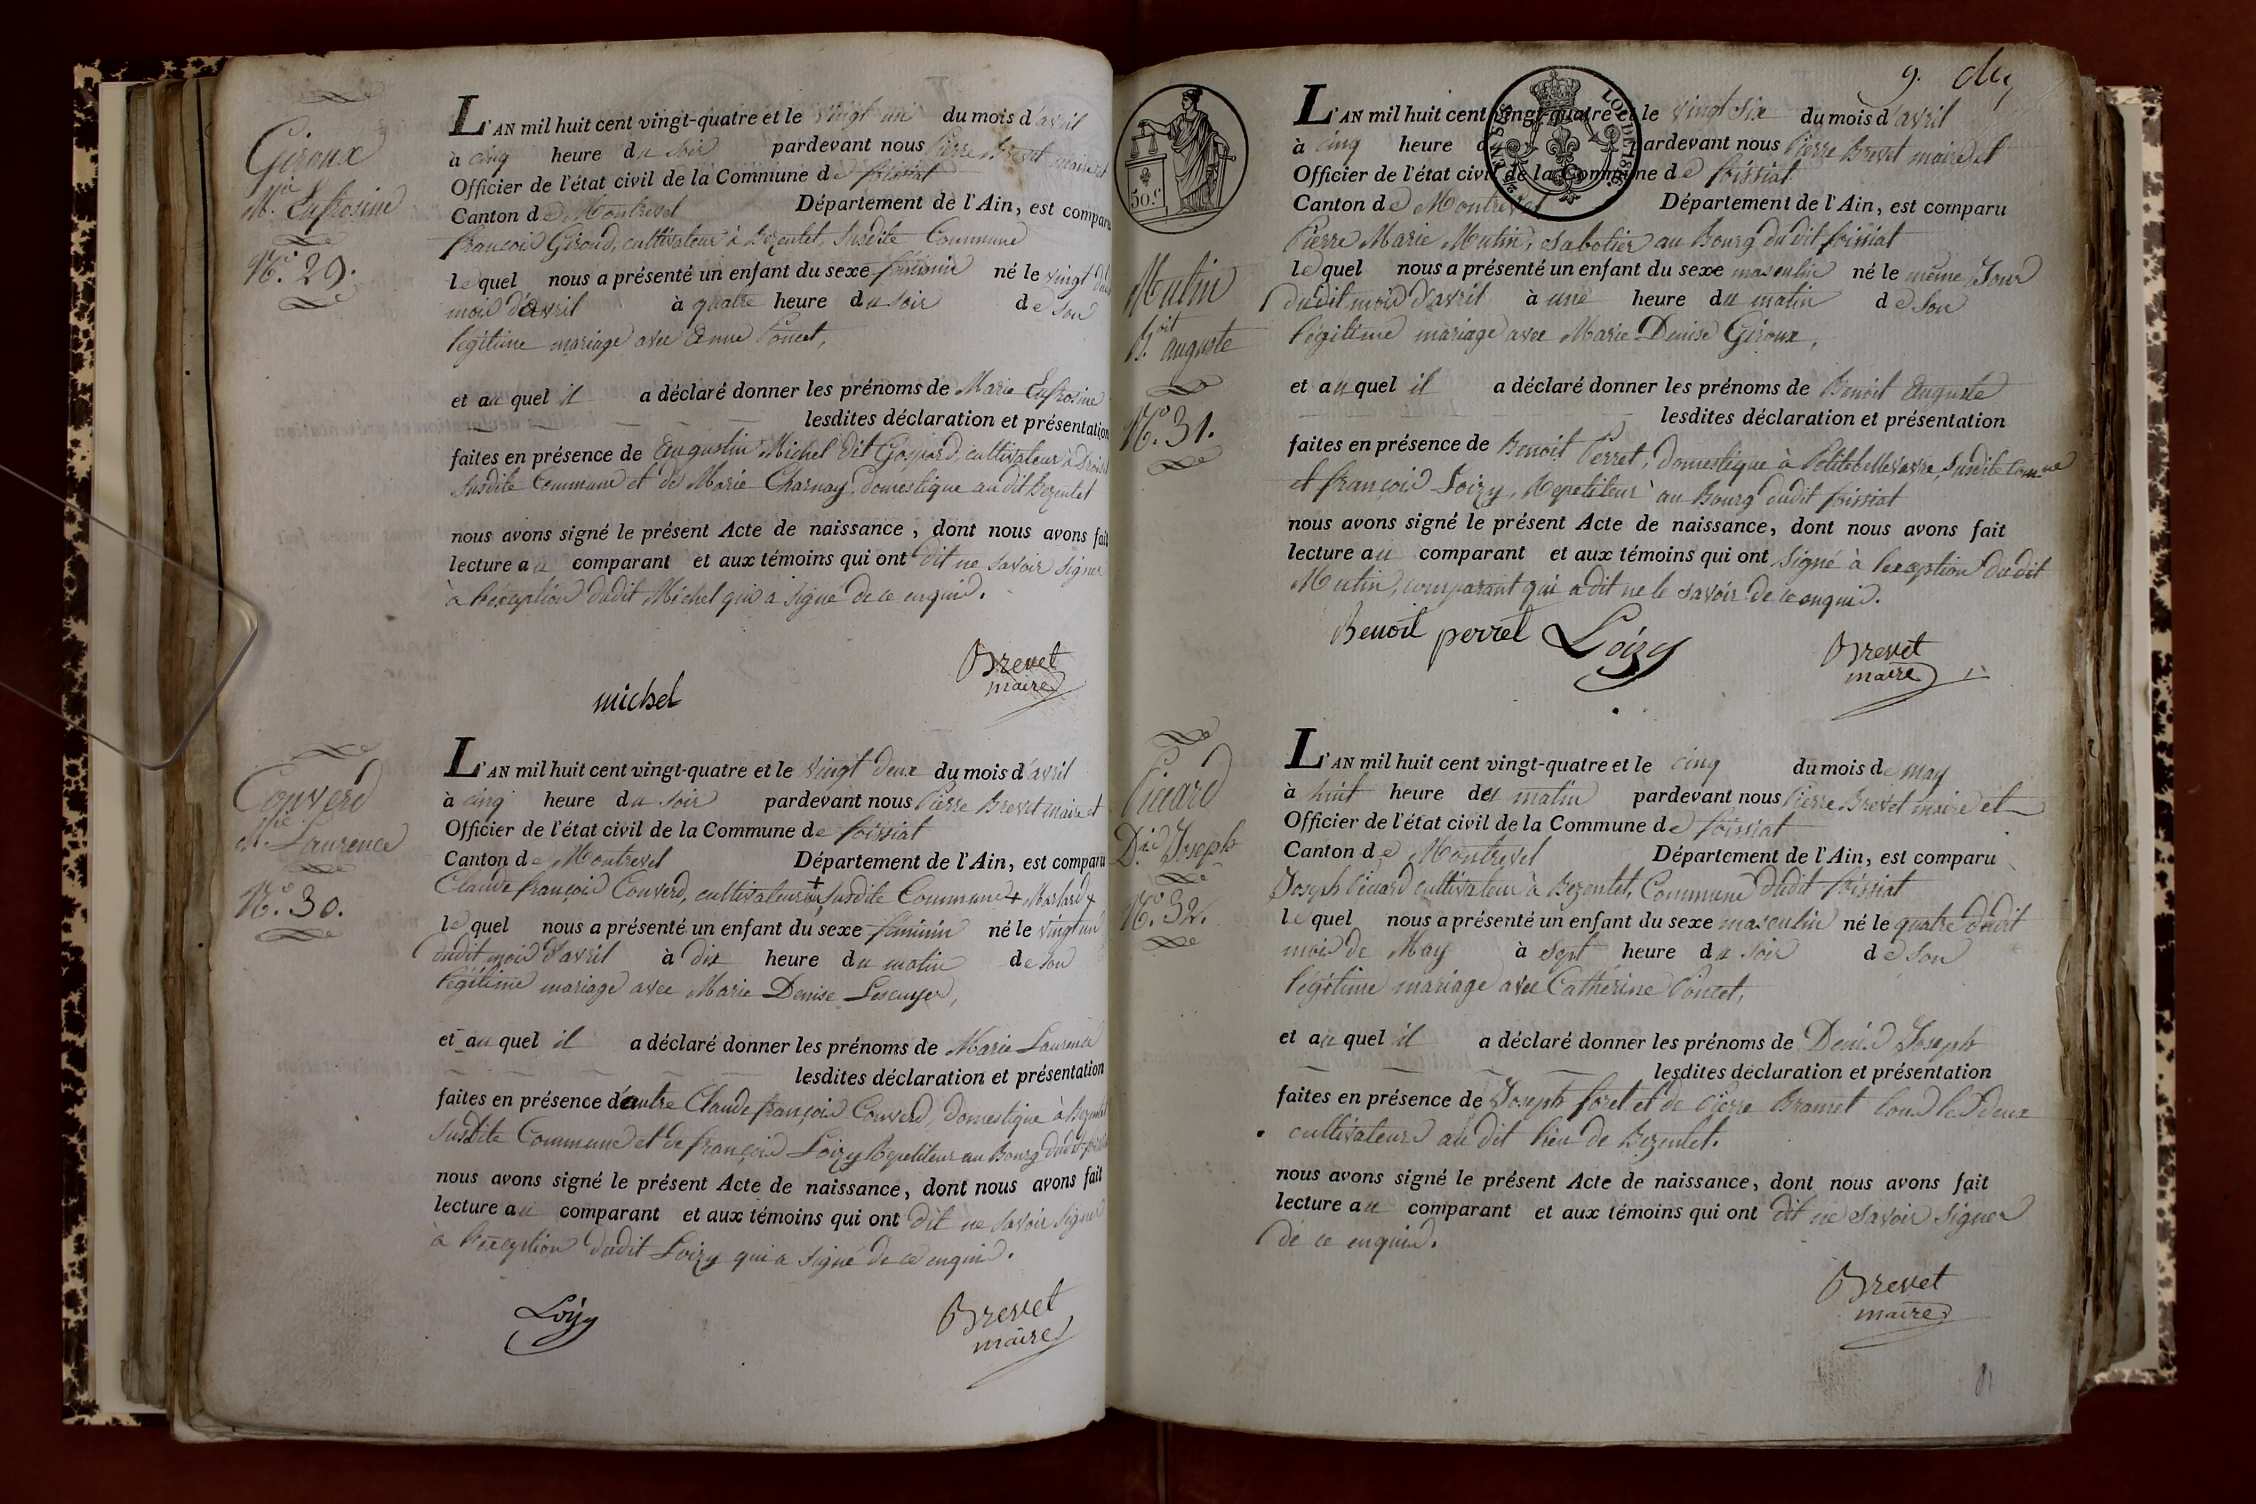 Giroux
M.ie Eufrosine
N.o 29.
L'AN mil huit cent vingt-quatre et le vingt un du mois d'avril
à cinq heure du soir pardevant nous Pierre Brevet maire et
Officier de l'état civil de la Commune de foissiat
Canton de Montrevel Département de l'Ain, est comparu
françois Giroud, cultivateur à Bezentet, susdite Commune
le quel nous a présenté un enfant du sexe féminin né le vingt dudit
mois d'avril à quatre heure du soir de son
légitime mariage avec Anne Poncet,
et au quel il a déclaré donner les prénoms de Marie Eufrosine
lesdites déclaration et présentation
faites en présence de Augustin Michel dit Gaspard, cultivateur à
susdite Commune et de Marie Charnay, domestique au dit Bezentet
nous avons signé le présent Acte de naissance, dont nous avons fait
lecture au comparant et aux témoins qui ont dit ne savoir signer
à l'exception dudit Michel qui a signé de ce enquis.
Brevet
maire
michel
Couverd
M.ie Laurence
N.o 30.
L'AN mil huit cent vingt-quatre et le vingt deux du mois d'avril
à cinq heure du soir pardevant nous Pierre Brevet maire et
Officier de l'état civil de la Commune de foissiat
Canton de Montrevel Département de l'Ain, est comparu
Claude françois Couverd, cultivateur à + susdite Commune +
le quel nous a présenté un enfant du sexe féminin né le vingt un
dudit mois d'avril à dix heure du matin de son
légitime mariage avec Marie Denise Lescuyer,
et au quel il a déclaré donner les prénoms de Marie Laurence
lesdites déclaration et présentation
faites en présence d'autre Claude françois Couverd, domestique à Bezentet
susdite Commune et de françois Loizy Repetiteur au Bourg dudit foissiat
nous avons signé le présent Acte de naissance, dont nous avons fait
lecture au comparant et aux témoins qui ont dit ne savoir signer
à l'exception dudit Loizy qui a signé de ce enquis.
Loizy
Brevet
maire
9.
50.c
LOI DE 1816.
Mutin
B.oit auguste
N.o 31.
L'AN mil huit cent vingt-quatre et le vingt six du mois d'avril
à cinq heure d pardevant nous Pierre Brevet maire et
Officier de l'état civil de la Commune de foissiat
Canton de Montrevel Département de l'Ain, est comparu
Pierre Marie Mutin, sabotier au Bourg du dit foissiat
le quel nous a présenté un enfant du sexe masculin né le même Jour
dudit mois d'avril à une heure du matin de son
légitime mariage avec Marie Denise Giroux,
et au quel il a déclaré donner les prénoms de Benoit Auguste
lesdites déclaration et présentation
faites en présence de Benoit Perret, domestique à susdite Commune
et françois Loizy, Repetiteur au Bourg dudit foissiat
nous avons signé le présent Acte de naissance, dont nous avons fait
lecture au comparant et aux témoins qui ont signé à l'exception dudit
Mutin, comparant qui a dit ne le savoir de ce enquis.
Benoit perret Loizy
Brevet
maire
Picard
D.is Joseph
N.o 32.
L'AN mil huit cent vingt-quatre et le cinq du mois de may
à huit heure du matin pardevant nous Pierre Brevet maire et
Officier de l'état civil de la Commune de foissiat
Canton de Montrevel Département de l'Ain, est comparu
Joseph Picard cultivateur à Bezentet, Commune dudit foissiat
le quel nous a présenté un enfant du sexe masculin né le quatre dudit
mois de May à sept heure du soir de son
légitime mariage avec Catherine Poncet,
et au quel il a déclaré donner les prénoms de Denis Joseph
lesdites déclaration et présentation
faites en présence de Joseph foret et de Pierre tous les deux
cultivateurs au dit lieu de Bezentet.
nous avons signé le présent Acte de naissance, dont nous avons fait
lecture au comparant et aux témoins qui ont dit ne savoir signer
de ce enquis.
Brevet
maire